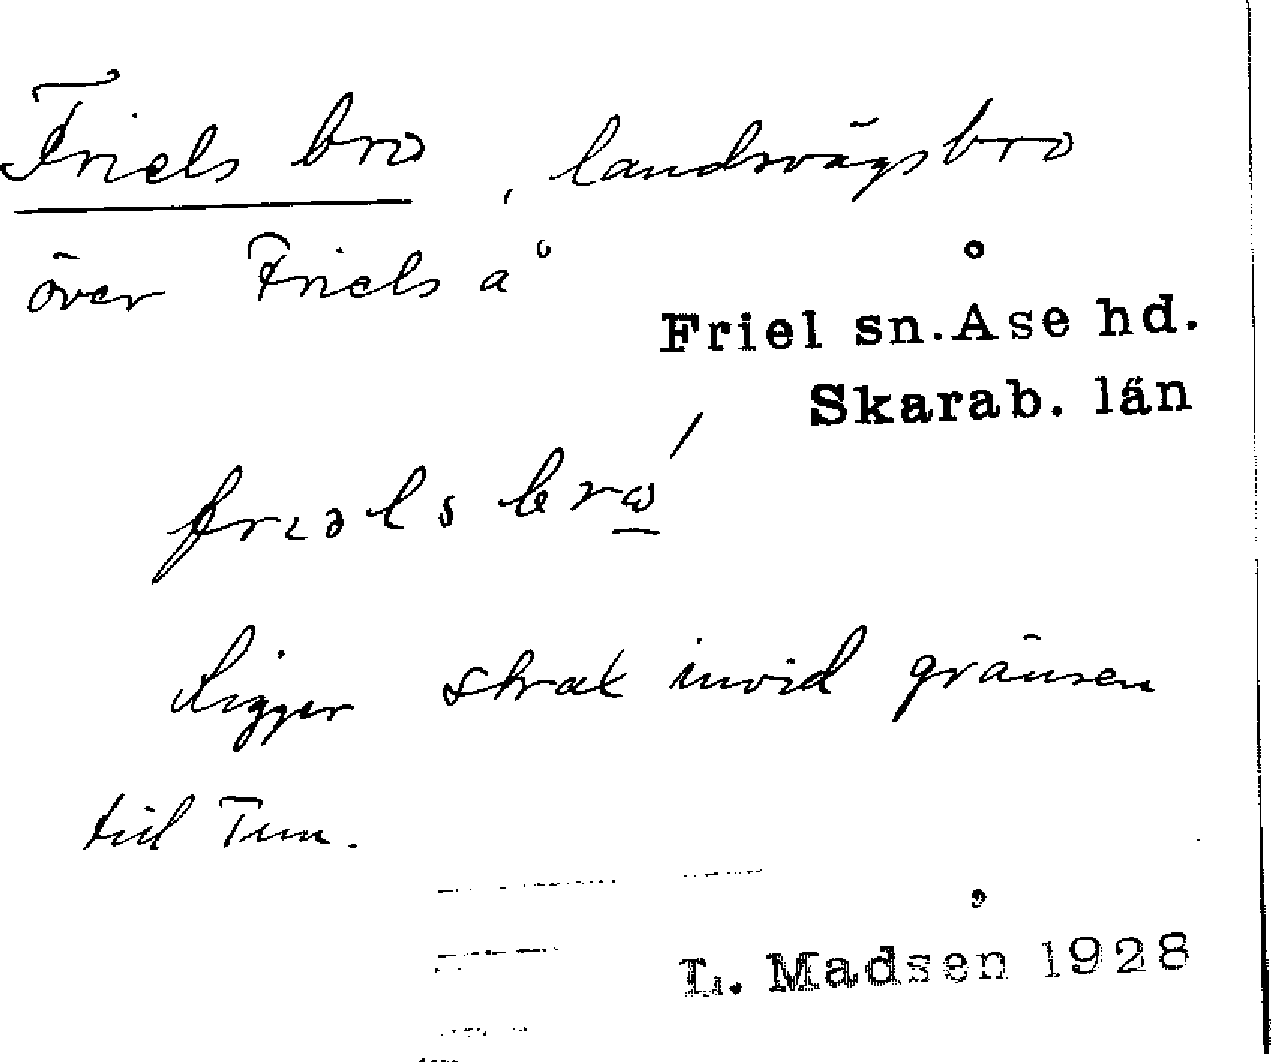 Friels bro, landsvägsbro
över Friels å
Friel sn. Åse hd.
Skarab. län
friəls brώ̲
Ligger strax invid gränsen
till Tun.
L. Madsen 1928